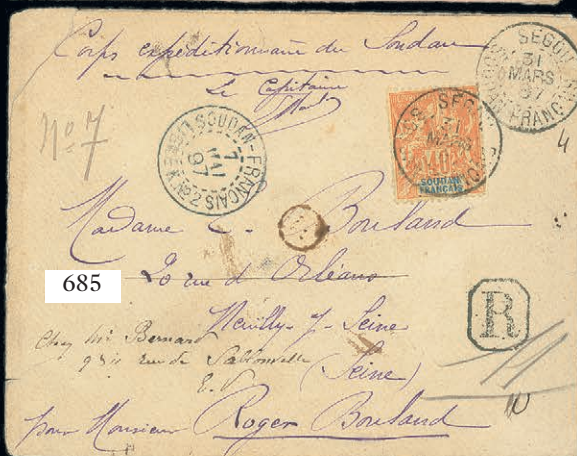 Corps expéditionnaire du Soudan
Le Capitaine
SEGOU
31
MARS
97
SOUDAN FRANCAIS
SEGOU
31
MARS
40
SOUDAN
FRANÇAIS
SOUDAN-FRANCAIS
7
MAI
97
K. No 2
No 7
4
Madame C. Bouland
20 rue d'Orléans
685
Neuilly-s-Seine
Chez Mr Bernard
9 bis rue de Sablonville
E.V
(Seine)
R
pour Monsieur Roger Bouland